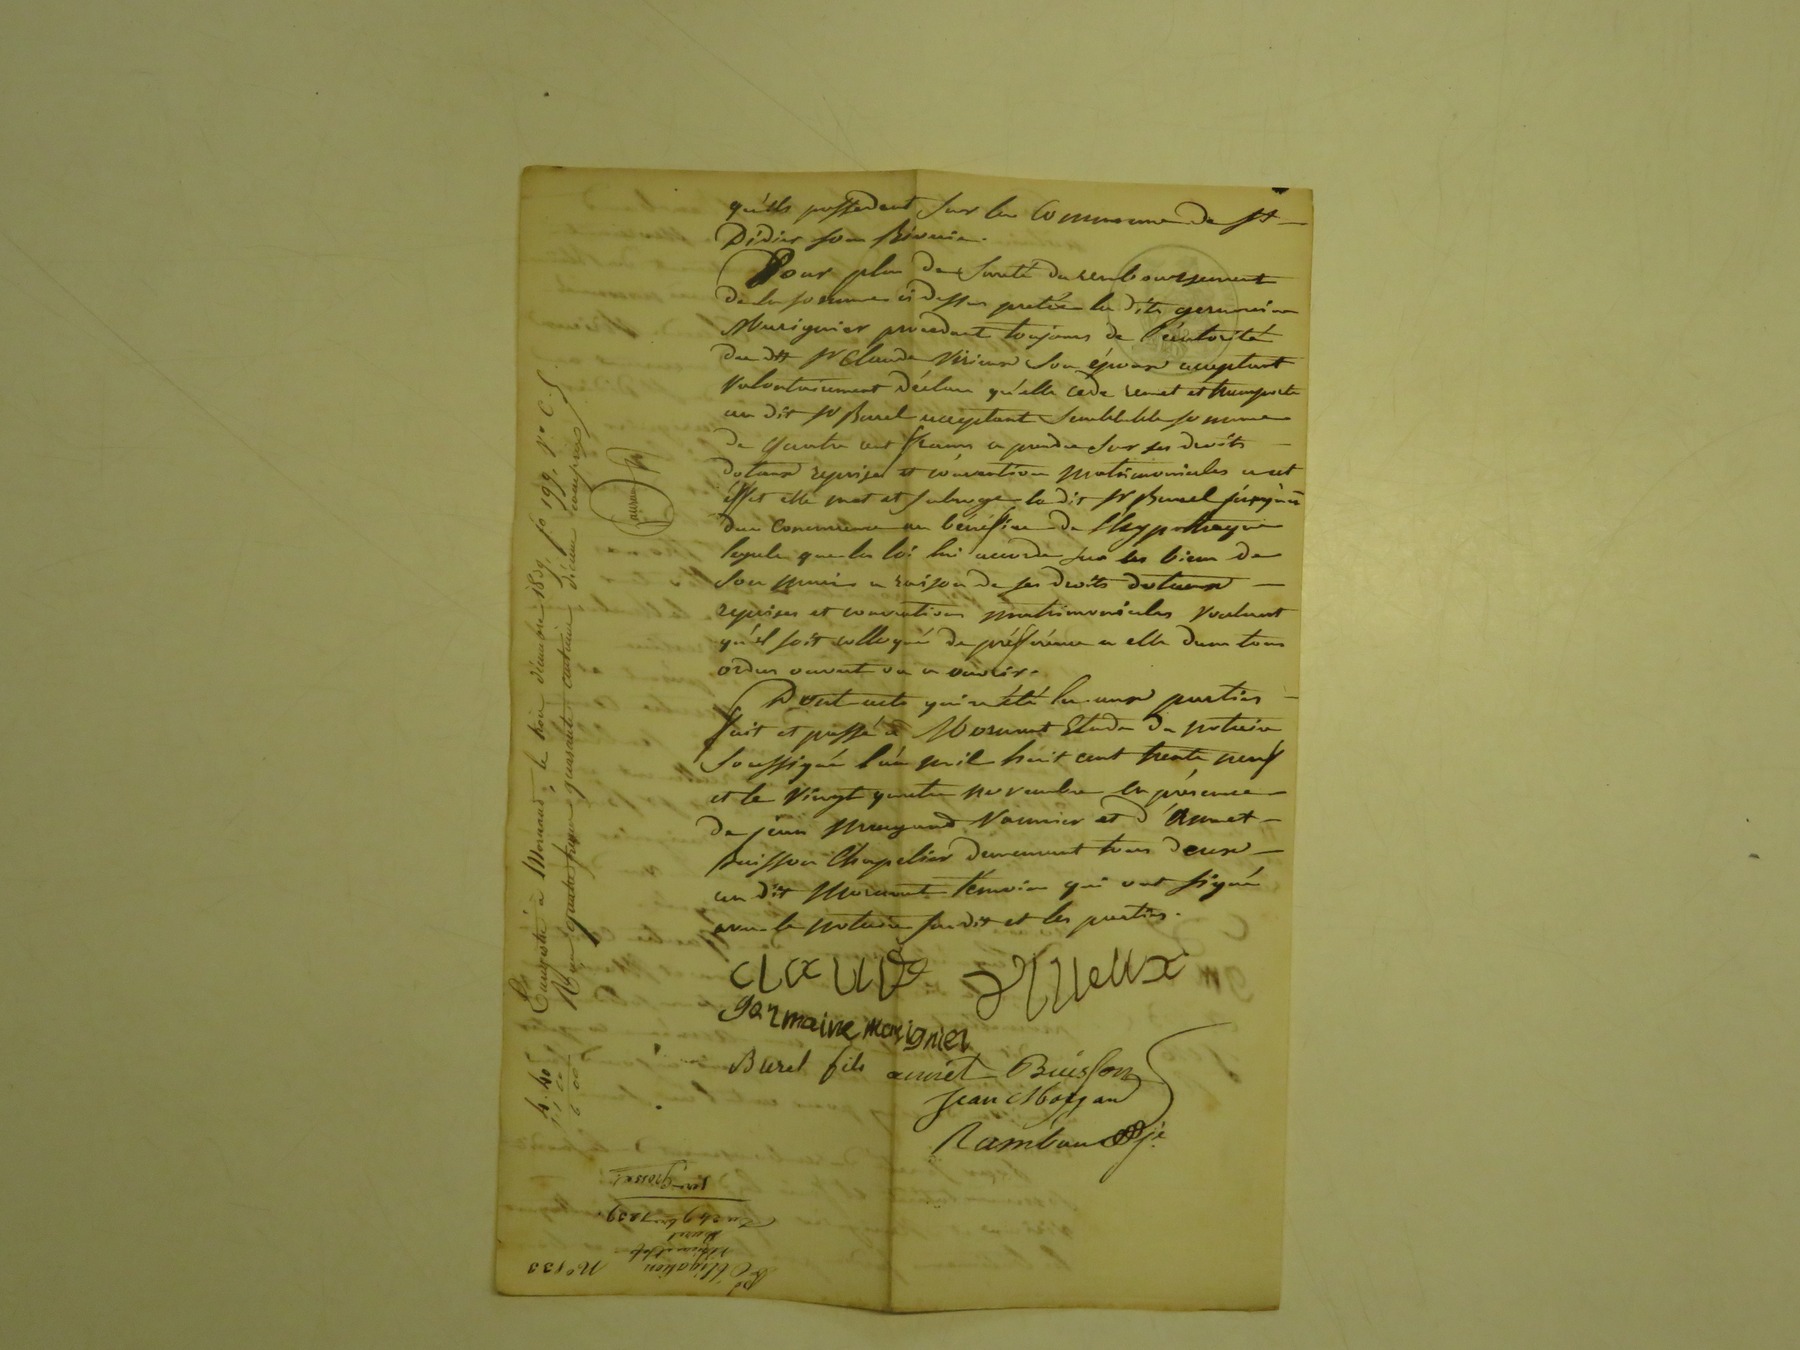 qu'ils possedent sur la Commune de St
Didier sous Riverie.
Pour plus de sureté du remboursement
de la somme ci dessus pretée la dite germaine
Murignier procedant toujours de l'autorité
du dit Sr Claude Virieux son époux acceptant
volontairement déclare qu'elle cede remet et transporte
au dit Sr Burel acceptant semblable somme
de quatre cent francs a prendre sur ses droits
dotaux reprises et convention matrimoniales a cet
éffet elle met et subroge le dit Sr Burel jusqu'a
due concurrence au bénéfice de l'hypotheque
legale que la loi lui accorde sur les biens de
son mari a raison de ses droits dotaux
reprises et convention matrimoniales voulant
qu'il soit colloqué de préférence a elle dans tous
ordres ouvert ou a ouvrir.
Dont acte qui a été lu aux parties
fait et passé à Mornant Etude du notaire
soussigné l'an mil huit cent trente neuf
et le vingt quatre novembre en présence
de jean et d'Annet
buisson Chapelier demeurant tous deux
au dit Mornant témoins qui ont signé
avec le notaire susdit et les parties.
claude virieux
garmaine morignier
Burel fils annet Buisson
Jean
Rambaud
Enregistré à Mornant le trois décembre 1839, fo 199, Vo C. 5.
Reçu quatre francs quarante centimes décime compris
4. 40
1. 60
6. 00
No 133
Obligation
Burel
Du 24 9bre 1839.
1ere grosse